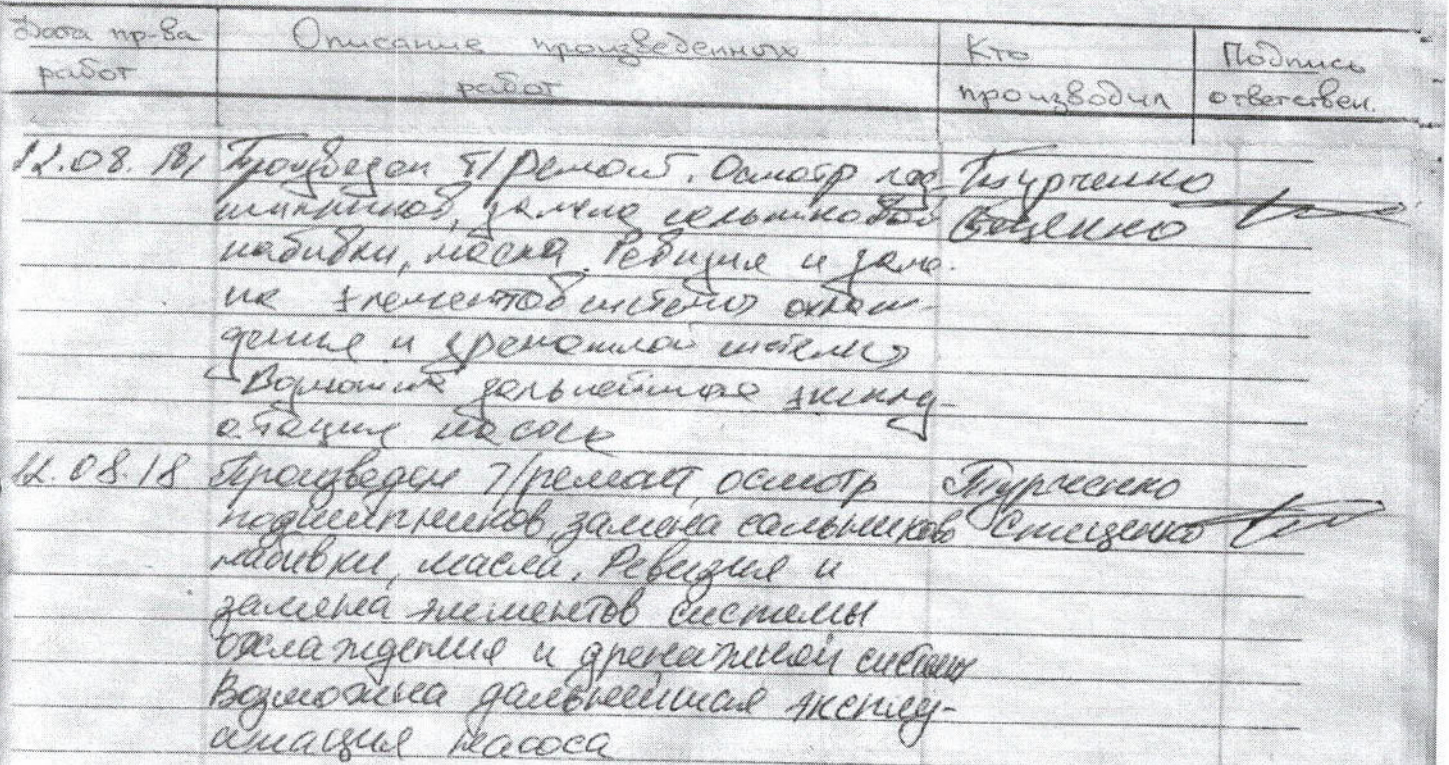 Дата пр-ва работ
Описание произведенных работ
Кто производил
Подпись ответствен.
12.08.18 Произведен т/ремонт. Осмотр под- Турченко
шипников, замена сальниковой Стеценко
набивки, масла. Ревизия и заме-
на элементов системы охлаж-
дения и дренажной системы
Возможна дальнейшая эксплу-
атация насоса
12.08.18 Произведен т/ремонт, осмотр Турченко
подшипников, замена сальников Стеценко
набивки, масла. Ревизия и
замена элементов системы
охлаждения и дренажной системы
Возможна дальнейшая эксплу-
атация насоса